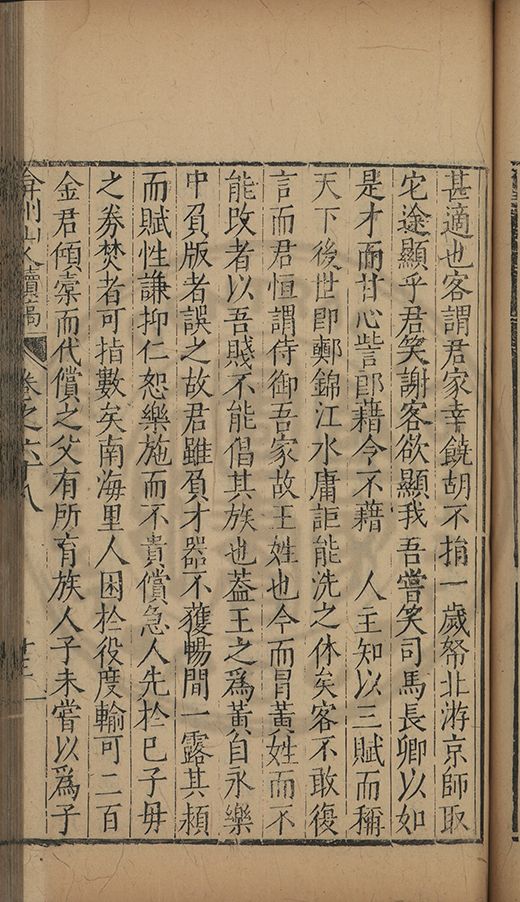 甚適也客謂君家幸饒胡不捐一歲帑北游京師取
它途顯乎君笑謝客欲顯我吾嘗笑司馬長卿以如
是才而甘心訾郎藉今不藉　人主知以三賦而稱
天下後世即鄴錦江水庸詎能洗之休矣客不敢復
言而君恒謂侍御吾家故王姓也今而冒黃姓而不
能改者以吾賤不能倡其族也葢王之爲黃自永樂
中負版者誤之故君雖負才器不獲暢間一露其頴
而賦性謙抑仁恕樂施而不責償急人先於已子毋
之券焚者可指數矣南海里人困於役度輸可二百
金君傾橐而代償之父有所育族人子未嘗以爲子
弇州山人續稿
卷之